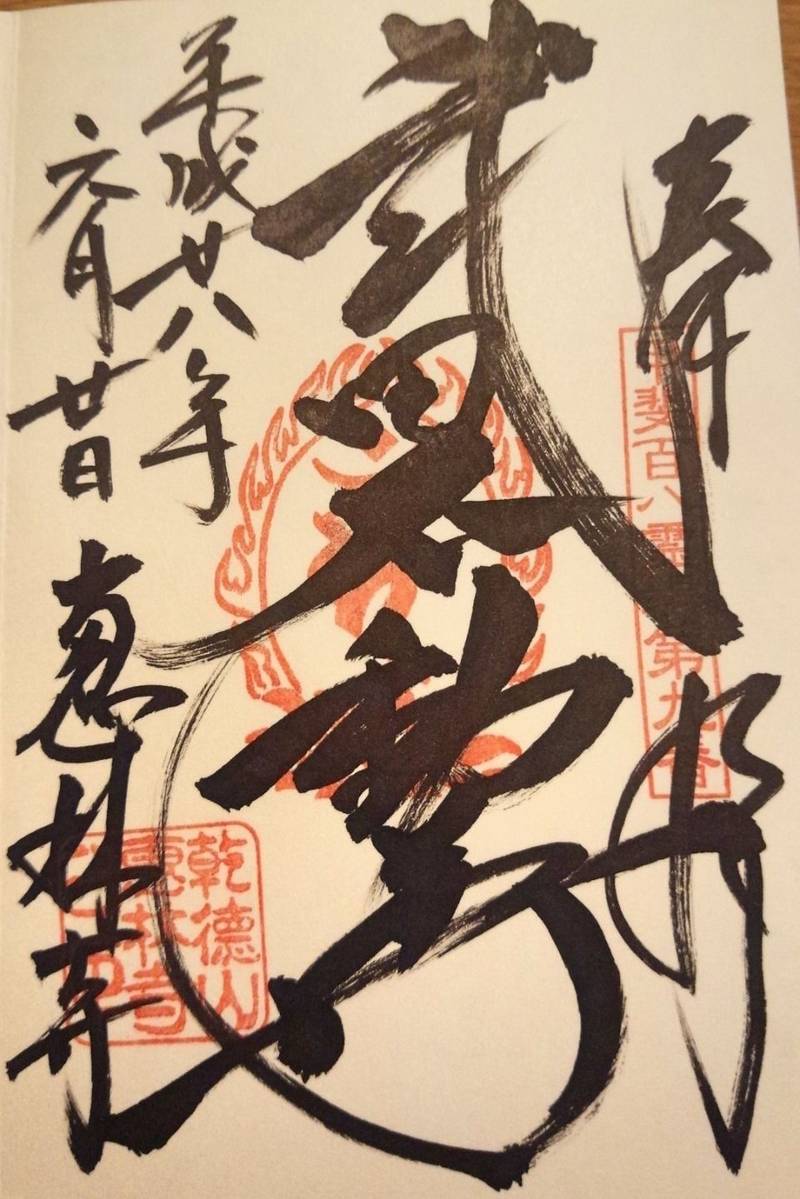 奉拝
甲斐百八霊場第九番
武田不動尊
平成廿八年
元月廿日
惠林寺
乾徳山
惠林寺